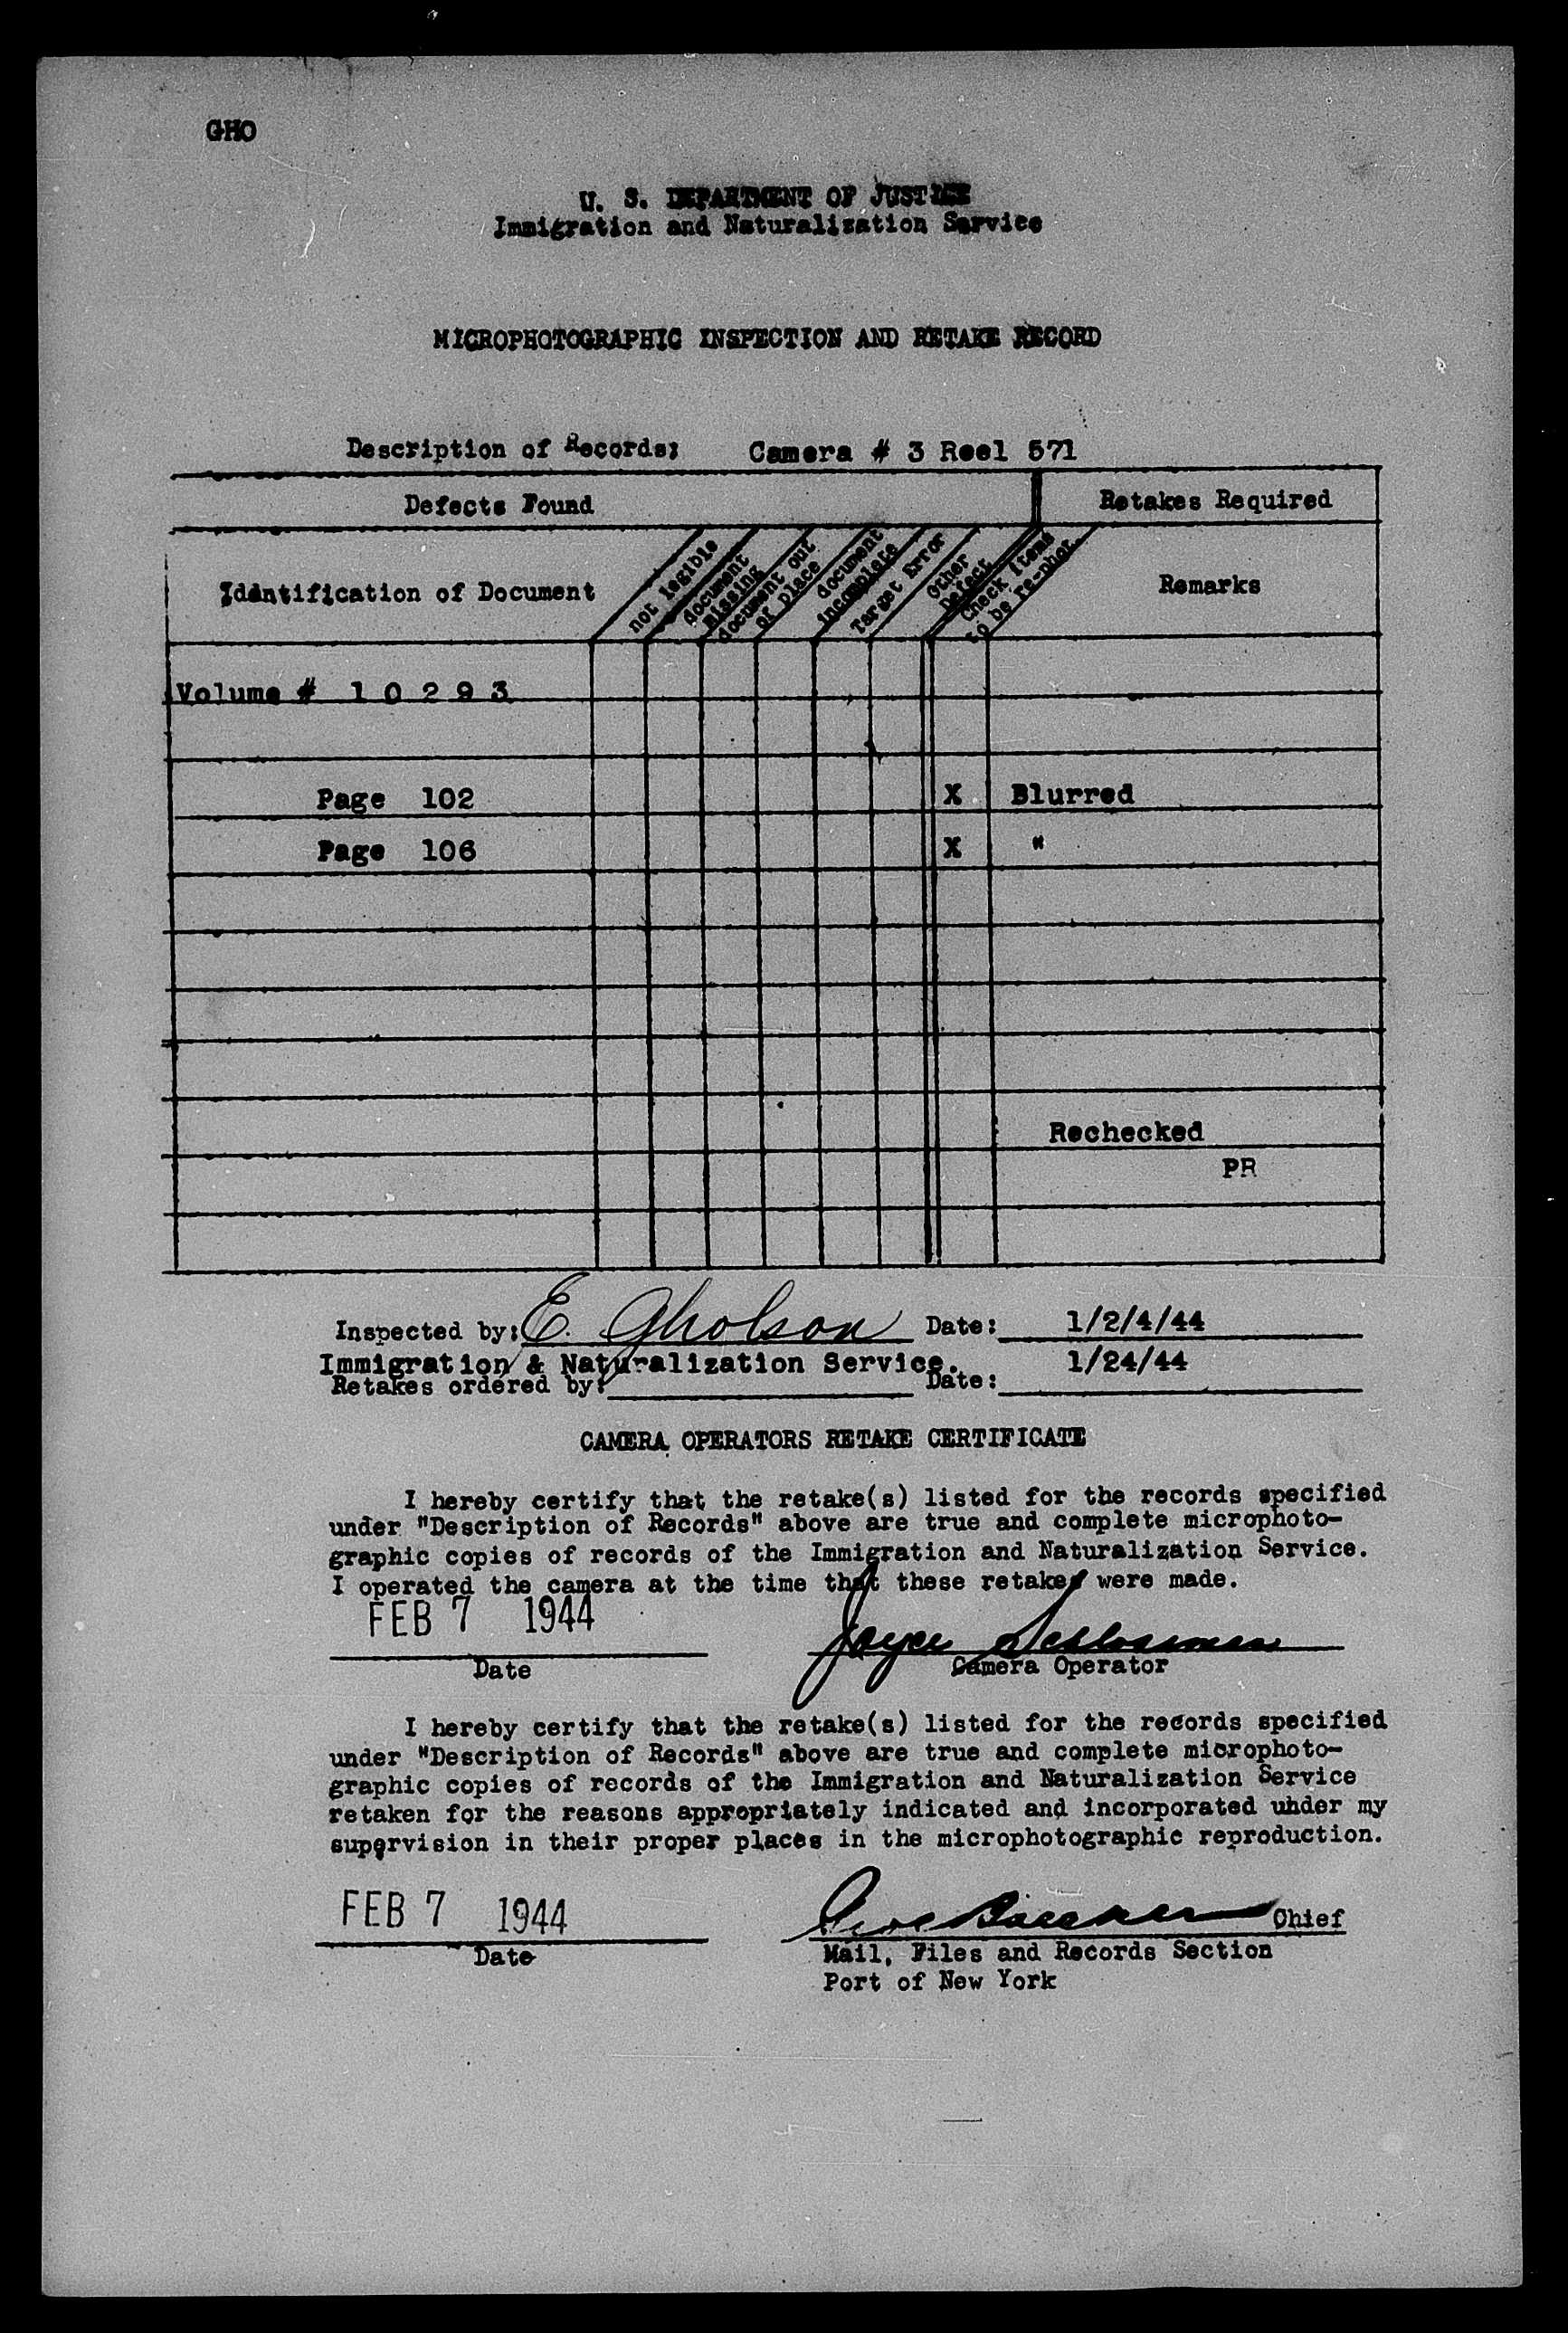 GHO
U. S. DEPARTMENT OF JUSTICE
Immigration and Naturalization Service
MICROPHOTOGRAPHIC INSPECTION AND RETAKE RECORD
Description of Records: Camera # 3 Reel 571
Defects Found
Retakes Required
Identification of Document
not legible
document missing
document out of place
document incomplete
Target Error
Other Defect
Check items to be re-phot.
Remarks
Volume # 1 0 2 9 3
Page 102 X Blurred
Page 106 X "
Rechecked
PR
Inspected by: E. Gholson Date: 1/2/4/44
Immigration & Naturalization Service. 1/24/44
Retakes ordered by: Date:
CAMERA OPERATORS RETAKE CERTIFICATE
I hereby certify that the retake(s) listed for the records specified
under "Description of Records" above are true and complete microphoto-
graphic copies of records of the Immigration and Naturalization Service.
I operated the camera at the time that these retakes were made.
FEB 7 1944
Joyce Schlossman
Date
Camera Operator
I hereby certify that the retake(s) listed for the records specified
under "Description of Records" above are true and complete microphoto-
graphic copies of records of the Immigration and Naturalization Service
retaken for the reasons appropriately indicated and incorporated under my
supervision in their proper places in the microphotographic reproduction.
FEB 7 1944
Chief
Date
Mail, Files and Records Section
Port of New York